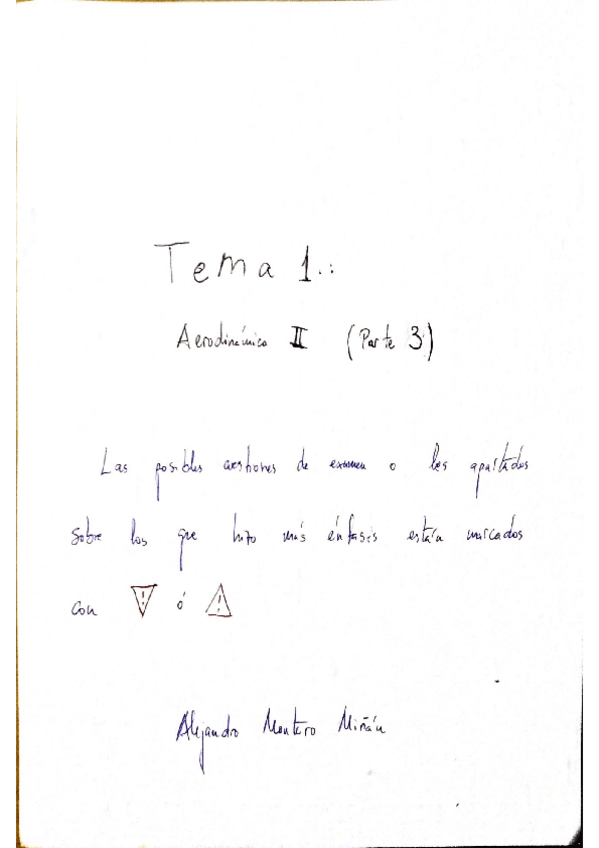 Tema 1.:
Aerodinámica II (Parte 3)
Las posibles cuestiones de examen o los apartados
sobre los que hizo más énfasis están marcados
con ⚠ ó ⚠
Alejandro Montero Miñán